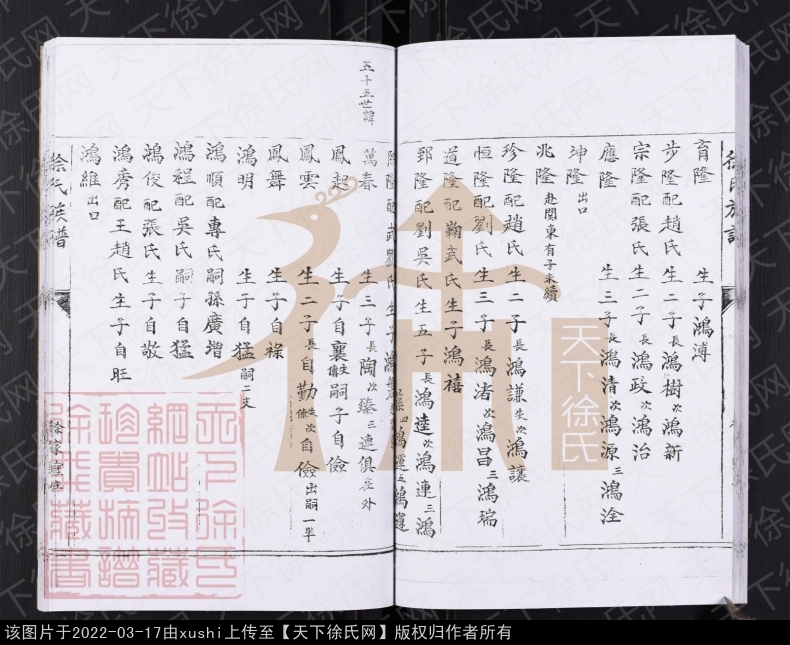 育隆 生子鴻溥
步隆配趙氏生二子長鴻樹次鴻新
宗隆配張氏生二子長鴻政次鴻治
應隆 生三子長鴻清次鴻源三鴻淦
坤隆 出口
兆隆 赴関東有子未續
珍隆配趙氏生二子長鴻謙失次鴻讓
恒隆配劉氏生三子長鴻渚次鴻昌三鴻瑞
道隆配鞠武氏生子鴻禧
郅隆配劉吳氏生五子長鴻逵次鴻連三鴻
四鴻運五鴻
隆配武劉氏生子鴻
五十五世諱
萬春 生三子長陶次臻三遠俱在外
鳳起 生子自襄生嗣子自儉
鳳雲 生二子長自勤生次自儉出嗣一半
鳳舞 生子自祿
鴻明 生子自猛嗣二支
鴻順配專氏嗣孫廣增
鴻程配吳氏嗣子自猛
鴻俊配張氏生子自敬
鴻秀配王趙氏生子自旺
鴻維 出口
徐氏族譜
天下徐氏
天下徐氏
網站收藏
珍貴族譜
徐氏藏書
该图片于2022-03-17由xushi上传至【天下徐氏网】版权归作者所有